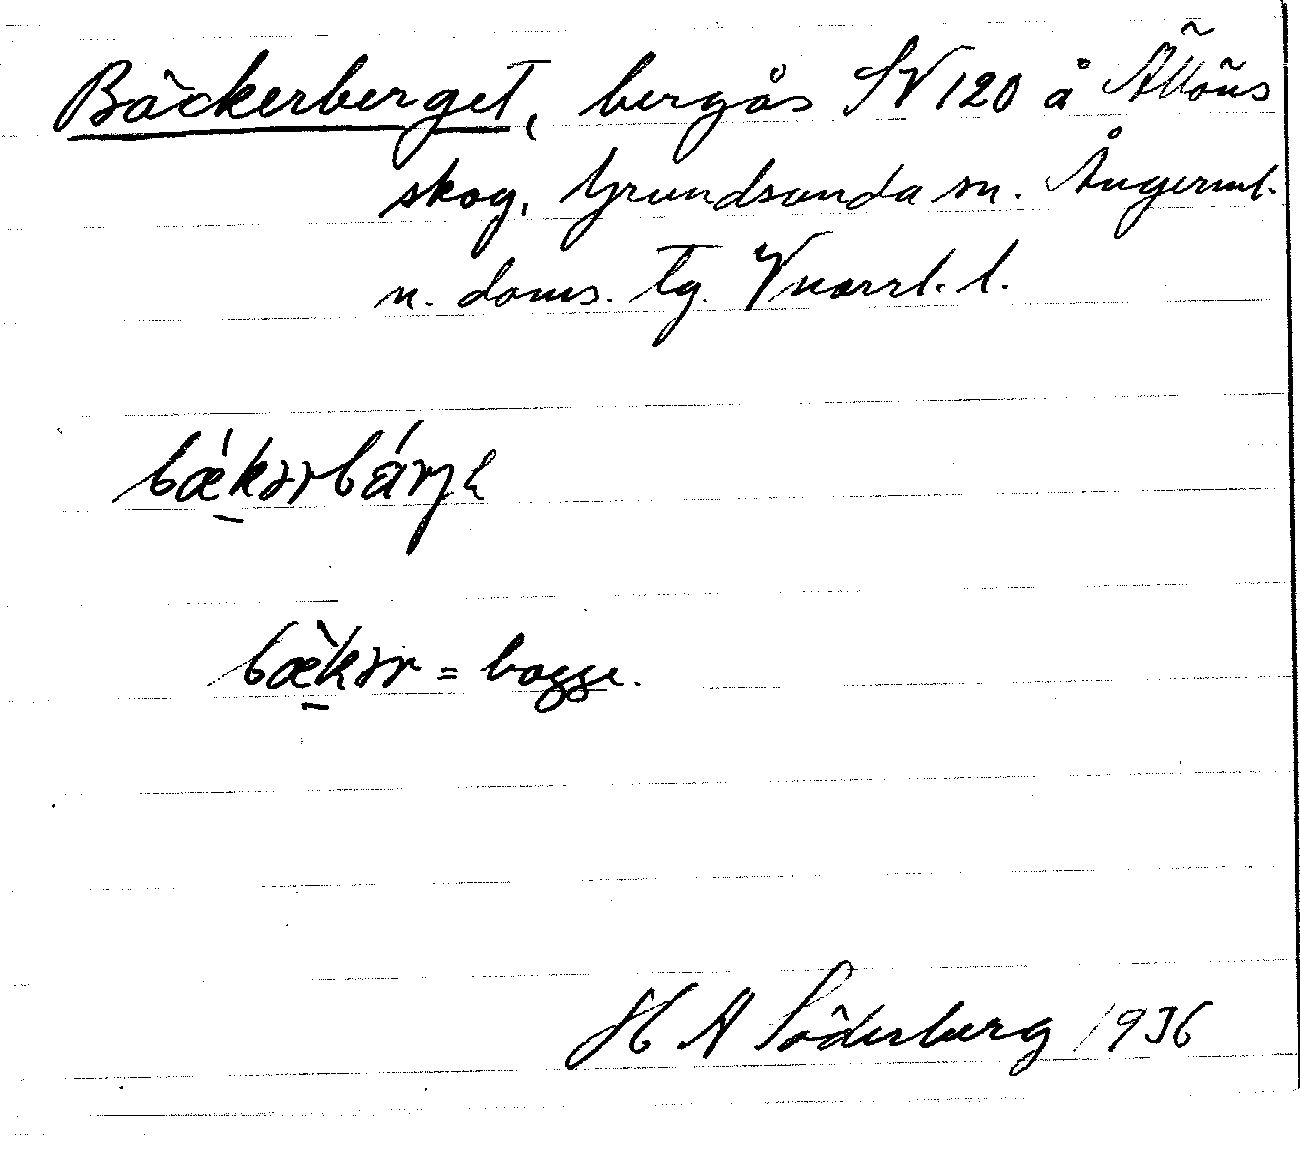 Bäckerberget, bergås SV 120 å Ällöns
skog, Grundsunda sn. Ångerml.
n. doms. tg. Vnorrl. l.
bækərbárjɛ
bækər = bagge.
H A Söderberg 1936